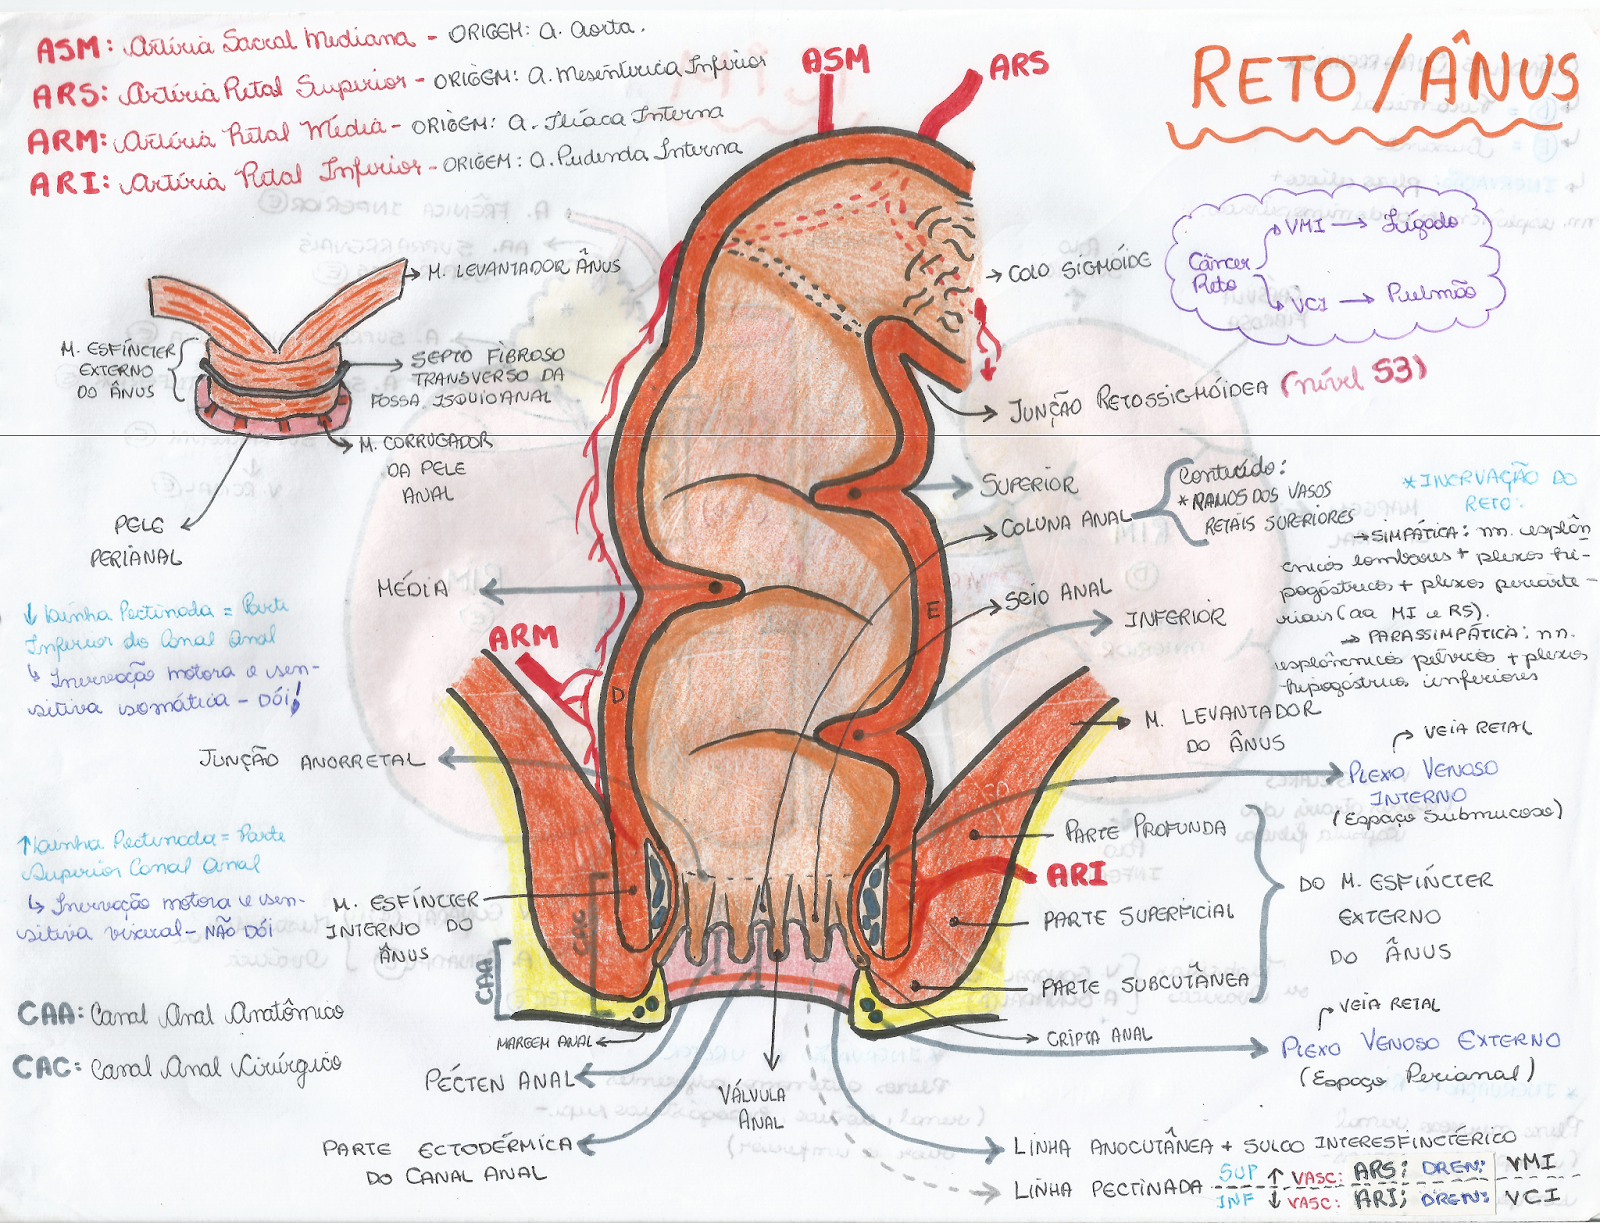 ASM: Artéria Sacral Mediana - ORIGEM: A. Aorta.
ARS: Artéria Retal Superior - ORIGEM: A. Mesentérica Inferior
ARM: Artéria Retal Média - ORIGEM: A. Ilíaca Interna
ARI: Artéria Retal Inferior - ORIGEM: A. Pudenda Interna
ASM
ARS
RETO/ÂNUS
Câncer
Reto
VMI → Fígado
VCI → Pulmão
COLO SIGMÓIDE
JUNÇÃO RETOSSIGMÓIDEA (nível S3)
M. LEVANTADOR ÂNUS
M. ESFÍNCTER
EXTERNO
DO ÂNUS
SEPTO FIBROSO
TRANSVERSO DA
FOSSA ISQUIOANAL
M. CORRUGADOR
DA PELE
ANAL
PELE
PERIANAL
SUPERIOR
COLUNA ANAL
Conteúdo:
* RAMOS DOS VASOS
RETAIS SUPERIORES
SEIO ANAL
INFERIOR
MÉDIA
* INERVAÇÃO DO
RETO:
→ SIMPÁTICA: nn. esplân
cnicos lombares + plexos hi-
pogástricos + plexos periarte-
riais (aa MI e RS).
→ PARASSIMPÁTICA: nn.
esplâncnicos pélvicos + plexos
hipogástricos inferiores
↓ Linha Pectinada = Parte
Inferior do Canal Anal
↳ Inervação motora e sen-
sitiva somática - DÓI!
ARM
D
E
M. LEVANTADOR
DO ÂNUS
JUNÇÃO ANORRETAL
VEIA RETAL
PLEXO VENOSO
INTERNO
(Espaço Submucoso)
↑ Linha Pectinada = Parte
Superior Canal Anal
↳ Inervação motora e sen-
sitiva visceral - NÃO DÓI
M. ESFÍNCTER
INTERNO DO
ÂNUS
CAC
CAA
PARTE PROFUNDA
ARI
PARTE SUPERFICIAL
PARTE SUBCUTÂNEA
DO M. ESFÍNCTER
EXTERNO
DO ÂNUS
CAA: Canal Anal Anatômico
CAC: Canal Anal Cirúrgico
MARGEM ANAL
PÉCTEN ANAL
VÁLVULA
ANAL
CRIPTA ANAL
VEIA RETAL
PLEXO VENOSO EXTERNO
(Espaço Perianal)
PARTE ECTODÉRMICA
DO CANAL ANAL
LINHA ANOCUTÂNEA + SULCO INTERESFINCTÉRICO
LINHA PECTINADA
SUP ↑ VASC: ARS; DREN: VMI
INF ↓ VASC: ARI; DREN: VCI